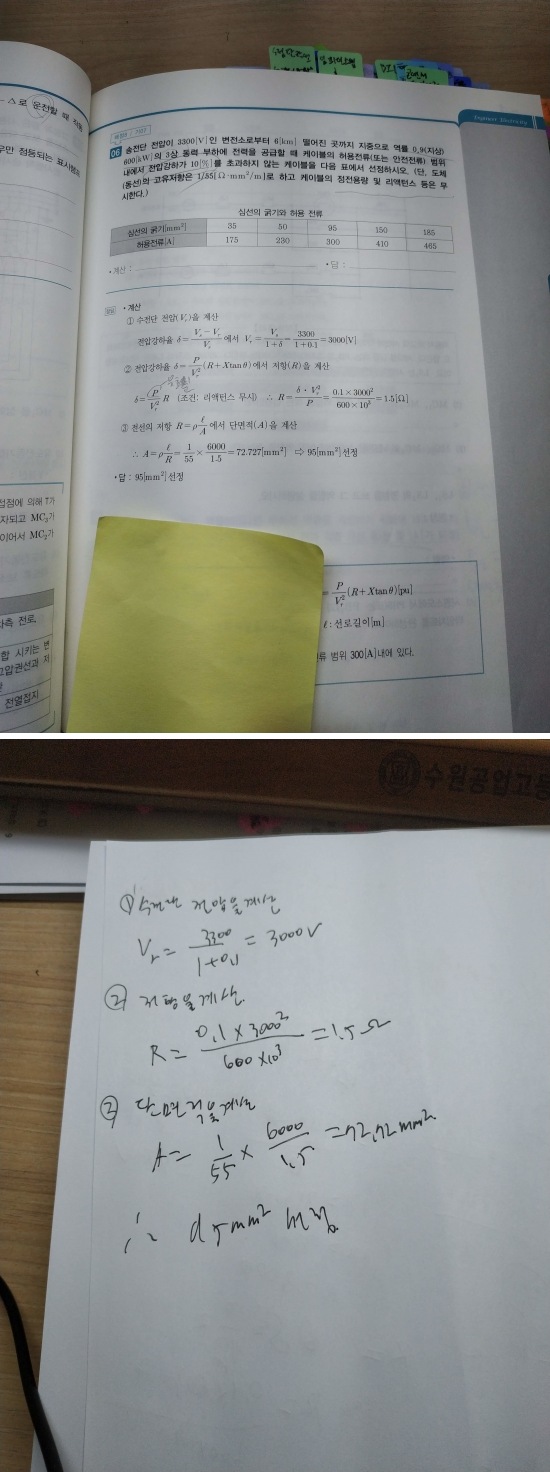 Engineer Electricity
-△로 운전할 때 작동
우만 점등되는 표시램프
06 송전단 전압이 3300[V]인 변전소로부터 6[km] 떨어진 곳까지 지중으로 역률 0.9(지상)
600[kW]의 3상 동력 부하에 전력을 공급할 때 케이블의 허용전류(또는 안전전류) 범위
내에서 전압강하가 10[%]를 초과하지 않는 케이블을 다음 표에서 선정하시오. (단, 도체
(동선)의 고유저항은 1/55[Ω·mm²/m]로 하고 케이블의 정전용량 및 리액턴스 등은 무
시한다.)
심선의 굵기와 허용 전류
심선의 굵기[mm²] 35 50 95 150 185
허용전류[A] 175 230 300 410 465
•계산 : •답 :
•계산
① 수전단 전압(Vr)을 계산
전압강하율 δ = (Vs − Vr)/Vr 에서 Vr = Vs/(1+δ) = 3300/(1+0.1) = 3000[V]
② 전압강하율 δ = P/Vr² (R+Xtanθ)에서 저항(R)을 계산
δ = P/Vr² R (조건: 리액턴스 무시) ∴ R = δ·Vr²/P = 0.1×3000²/600×10³ = 1.5[Ω]
③ 전선의 저항 R = ρ ℓ/A 에서 단면적(A)을 계산
∴ A = ρ ℓ/R = 1/55 × 6000/1.5 = 72.727[mm²] ⇨ 95[mm²] 선정
•답 : 95[mm²] 선정
접점에 의해 T가
자되고 MC₂가
이어서 MC₂가
측 전로,
합 시키는 변
고압권선과 저
전열접지
= P/Vr² (R+Xtanθ)[pu]
ℓ : 선로길이[m]
류 범위 300[A]내에 있다.
수원공업고등
① 수전단 전압을 계산
Vr = 3300/(1+0.1) = 3000V
② 저항을 계산
R = 0.1×3000²/600×10³ = 1.5Ω
③ 단면적을 계산
A = 1/55 × 6000/1.5 = 72.72mm²
∴ 95mm²